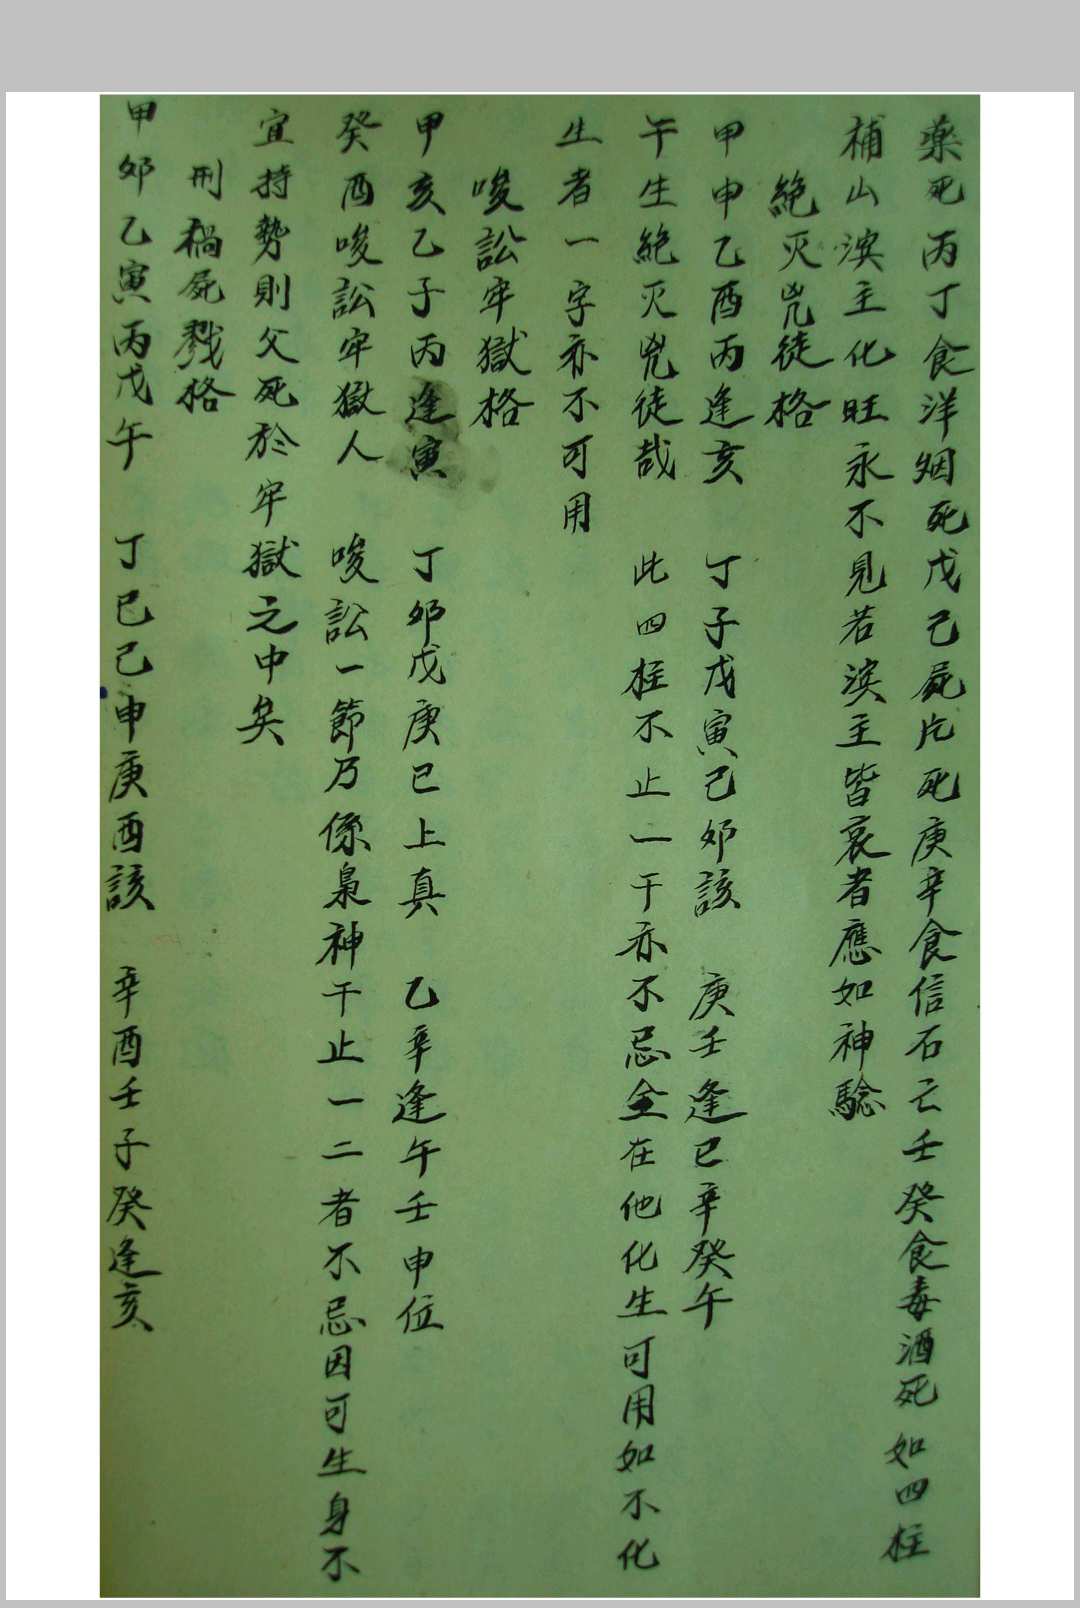 藥死丙丁食洋烟死戊己屍片死庚辛食信石亡壬癸食毒酒死如四柱
補山淚主化旺永不見若淚主皆哀者應如神驗
絕灭兇徒格
甲申乙酉丙逢亥 丁子戊寅己夘該 庚壬逢巳辛癸午
午生絕灭兇徒哉 此四柱不止一干亦不忌全在他化生可用如不化
生者一字亦不可用
唆訟牢獄格
甲亥乙子丙逢寅 丁夘戊庚巳上真 乙辛逢午壬申位
癸酉唆訟牢獄人 唆訟一節乃係梟神干止一二者不忌因可生身不
宜持勢則父死於牢獄之中矣
刑禍屍戮格
甲夘乙寅丙戊午 丁巳己申庚酉該 辛酉壬子癸逢亥